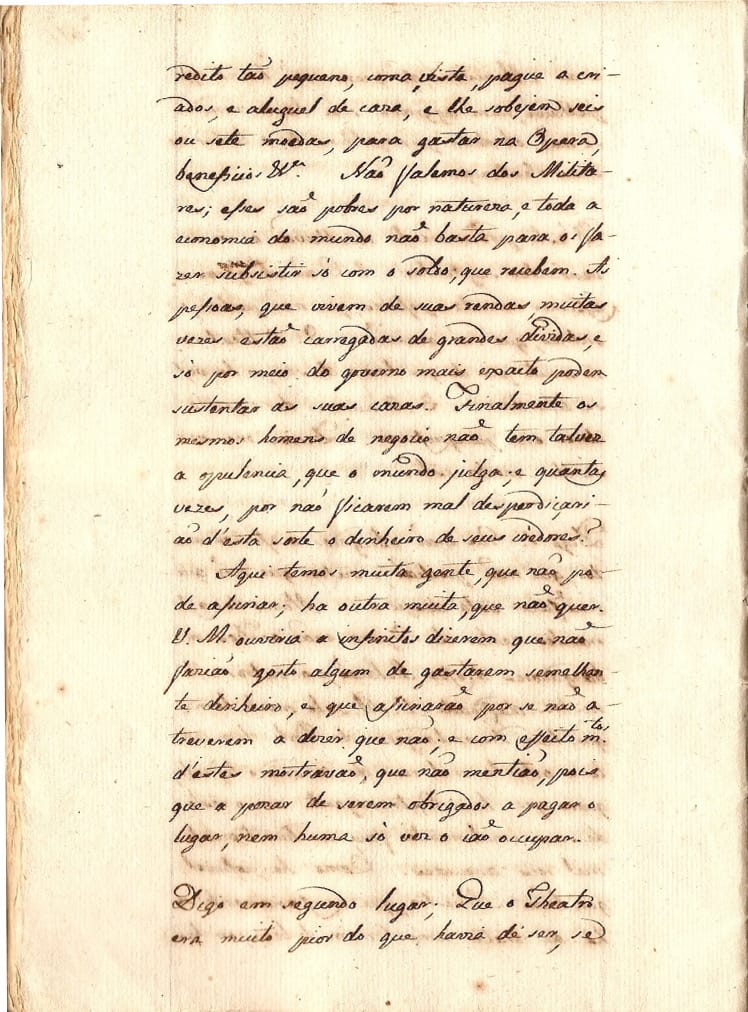 redito taõ pequeno, coma, vista, pague a cri-
ados, e aluguel de caza, e lhe sobejem seis
ou sete moedas, para gastar na Opera,
beneficios &ª. Naõ falemos dos Milita-
res; esses saõ pobres por natureza, e toda a
economia do mundo naõ basta para os fa-
zer subsistir só com o soldo, que recebem. As
pessoas, que vivem de suas rendas, muitas
vezes estaõ carregadas de grandes dividas, e
só por meio do governo mais exacto podem
sustentar as suas cazas. Finalmente os
mesmos homens de negocio naõ tem talvez
a opulencia, que o mundo julga; e quantas
vezes, por naõ ficarem mal desperdiçari-
aõ d'esta sorte o dinheiro de seus credores?
Aqui temos muita gente, que naõ po-
de asinar; ha outra muita, que naõ quer.
V. M. ouviria a infinitos dizerem que naõ
faziaõ gosto algum de gastarem semelhan-
te dinheiro, e que asinaraõ por se naõ a-
treverem a dizer que naõ; e com effeito m.tos
d'estes mostravaõ, que naõ mentiaõ, pois
que a pezar de serem obrigados a pagar o
lugar, nem huma só vez o iaõ occupar.
Digo em segundo lugar; Que o Theatro
era muito pior do que havia de ser, se